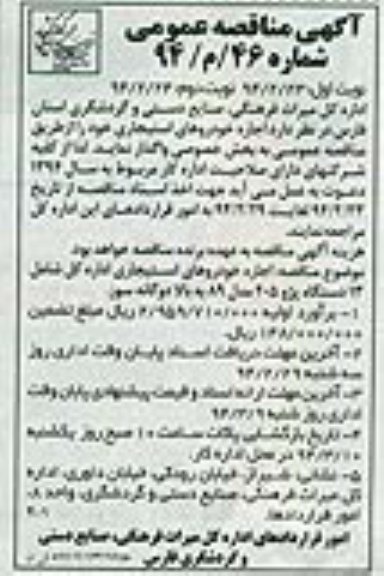 آگهی مناقصه عمومی
شماره ۴۶/م/۹۴
نوبت اول: ۹۴/۲/۲۳ نوبت دوم: ۹۴/۲/۲۴
اداره کل میراث فرهنگی، صنایع دستی و گردشگری استان
فارس در نظر دارد اجاره خودروهای استیجاری خود را از طریق
مناقصه عمومی به بخش خصوصی واگذار نماید. لذا از کلیه
شرکتهای دارای صلاحیت اداره کار مربوط به سال ۱۳۹۴
دعوت به عمل می آید جهت اخذ اسناد مناقصه از تاریخ
۹۴/۲/۲۳ لغایت ۹۴/۲/۲۹ به امور قراردادهای این اداره کل
مراجعه نمایند.
هزینه آگهی مناقصه به عهده برنده مناقصه خواهد بود.
موضوع مناقصه: اجاره خودروهای استیجاری اداره کل شامل
۱۳ دستگاه پژو ۴۰۵ مدل ۸۹ به بالا دوگانه سوز
۱- برآورد اولیه ۲/۹۵۹/۷۱۰/۰۰۰ ریال مبلغ تضمین
۱۴۸/۰۰۰/۰۰۰ ریال.
۲- آخرین مهلت دریافت اسناد پایان وقت اداری روز
سه شنبه ۹۴/۲/۲۹
۳- آخرین مهلت ارائه اسناد و قیمت پیشنهادی پایان وقت
اداری روز شنبه ۹۴/۳/۹
۴- تاریخ بازگشایی پاکات ساعت ۱۰ صبح روز یکشنبه
۹۴/۳/۱۰ در محل اداره کل.
۵- نشانی: شیراز، خیابان رودکی، خیابان داوری، اداره
کل میراث فرهنگی، صنایع دستی و گردشگری، واحد ۸،
امور قراردادها.
امور قراردادهای اداره کل میراث فرهنگی، صنایع دستی
و گردشگری فارس